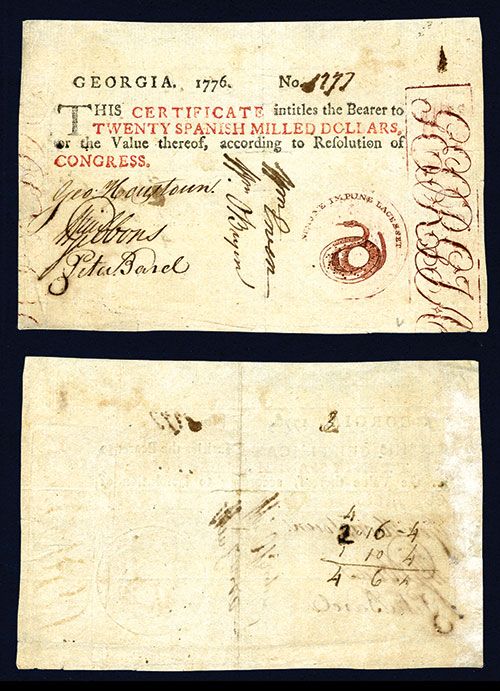 GEORGIA, 1776. No. 1777
THIS CERTIFICATE intitles the Bearer to
TWENTY SPANISH MILLED DOLLARS,
or the Value thereof, according to Resolution of
CONGRESS.
Geo Houstoun.
Wm O'Bryen
Wm Ewen
NEMO ME IMPUNE LACESSET
Gibbons
Peter Bard
GEORGIA
3
4
2 16 - 4
1 10 . 4
4 - 6 - 4